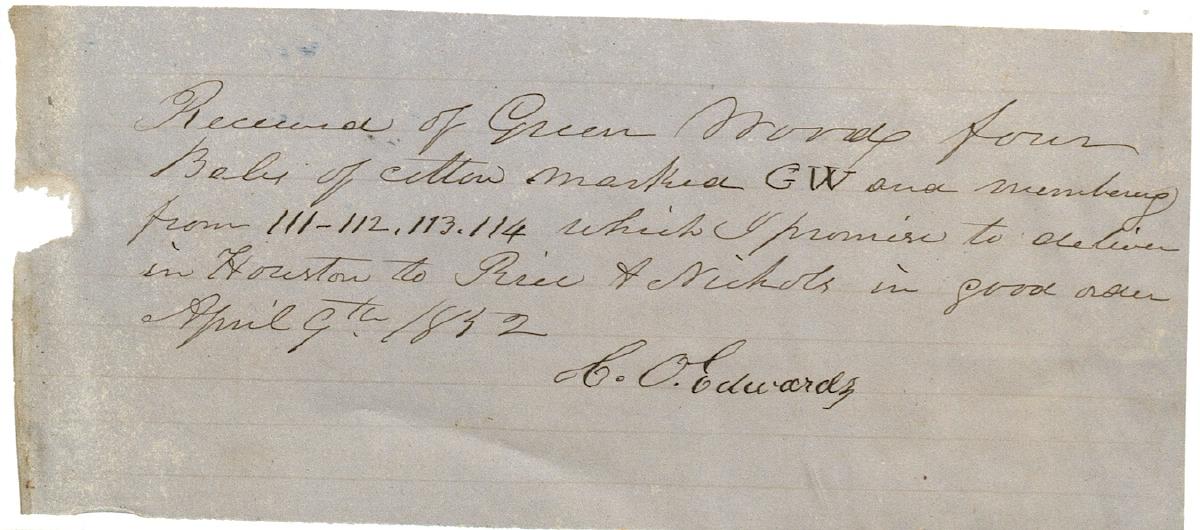 Received of Green Wood four
Bales of cotton marked GW and numbering
from 111-112.113.114 which I promise to deliver
in Houston to Rice & Nichols in good order
April 9th 1852
C. O. Edwards